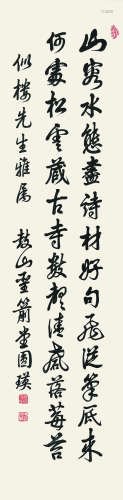 山容水態盡詩材好句飛從筆底來
何處松雲藏古寺數聲清磬落莓苔
似樓先生雅屬　鼓山聖箭堂圓瑛